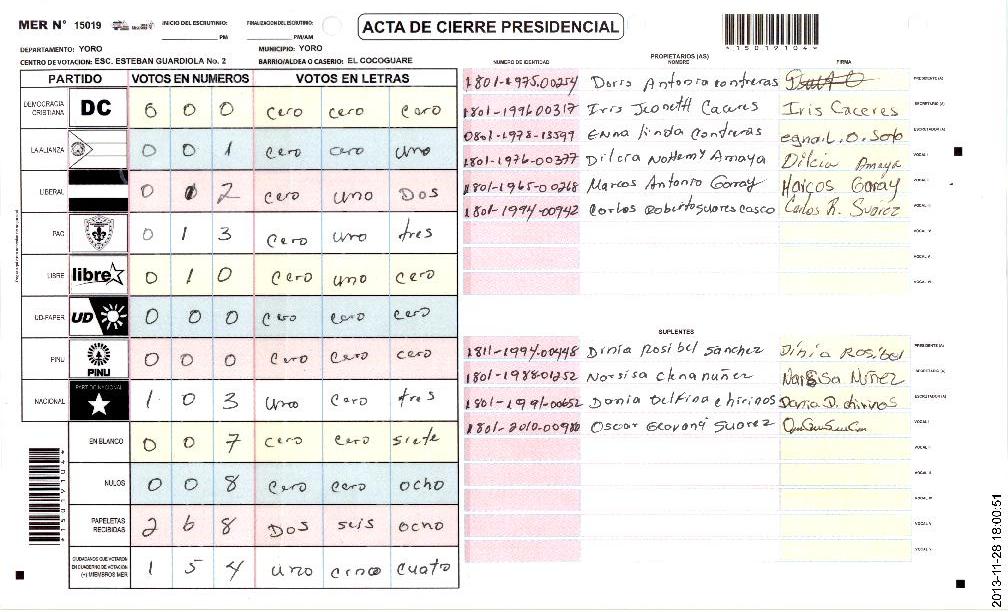 MER N° 15019 INICIO DEL ESCRUTINIO: PM FINALIZACION DEL ESCRUTINIO: PM/AM
ACTA DE CIERRE PRESIDENCIAL
*1501910 4*
DEPARTAMENTO: YORO MUNICIPIO: YORO
CENTRO DE VOTACION: ESC. ESTEBAN GUARDIOLA No. 2 BARRIO/ALDEA O CASERIO: EL COCOGUARE
PARTIDO VOTOS EN NUMEROS VOTOS EN LETRAS
DEMOCRACIA CRISTIANA DC 0 0 0 cero cero cero
LA ALIANZA 0 0 1 cero cero uno
LIBERAL 0 1 2 cero uno Dos
PAC 0 1 3 cero uno tres
LIBRE libre 0 1 0 cero uno cero
UD-FAPER UD 0 0 0 cero cero cero
PINU PINU 0 0 0 cero cero cero
NACIONAL PARTIDO NACIONAL 1 0 3 uno cero tres
EN BLANCO 0 0 7 cero cero siete
NULOS 0 0 8 cero cero ocho
PAPELETAS RECIBIDAS 2 6 8 Dos seis ocho
CIUDADANOS QUE VOTARON EN CUADERNO DE VOTACION (+) MIEMBROS MER 1 5 4 uno cinco cuatro
PROPIETARIOS (AS)
NUMERO DE IDENTIDAD NOMBRE FIRMA
1801-1975-00254 Doris Antonia contreras PRESIDENTE(A)
1801-1996 00317 Iris Jeoneth Caceres Iris Caceres SECRETARIO (A)
0801-1978-13599 Enna linda Contreras ESCRUTADOR (A)
1801-1976-00377 Dilcia Nohemy Amaya Dilcia Amaya VOCAL I
1801-1965-00268 Marcos Antonio Garay Marcos Garay VOCAL II
1801-1994-00942 Carlos Roberto Suares Casco Carlos R. Suarez VOCAL III
VOCAL IV
VOCAL V
VOCAL VI
SUPLENTES
1811-1994-00448 Dinia Rosibel Sanchez Dinia Rosibel PRESIDENTE (A)
1801-1988-01252 Narsisa Elena nuñez Narsisa Nuñez SECRETARIO (A)
1801-1991-00652 Dania Delfina chirinos Dania D. chirinos ESCRUTADOR (A)
1801-2010-00980 Oscar Geovany Suarez VOCAL I
VOCAL II
VOCAL III
VOCAL IV
VOCAL V
VOCAL VI
2013-11-28 18:00:51